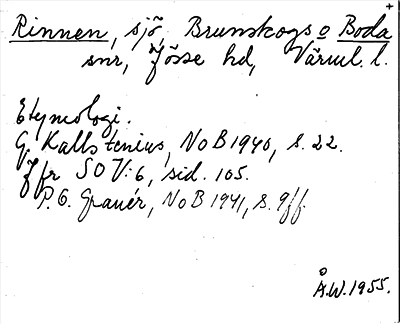 Rinnen, sjö, Brunskogs o Boda
snr, Jösse hd, Värml. l.
Etymologi.
G. Kallstenius, NoB 1940, s. 22.
Jfr SOV: 6, sid. 105.
P. G. Granér, NoB 1941, s. 9ff.
Å.W. 1955.